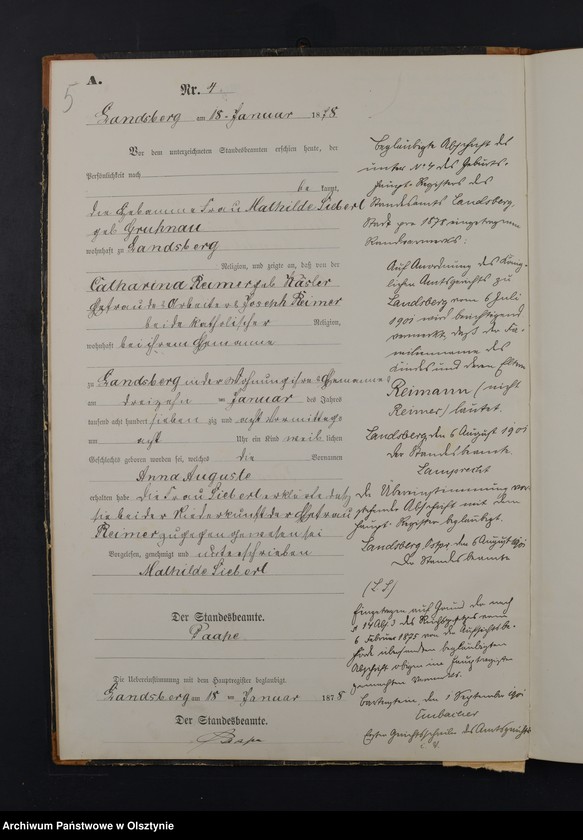 5
A.
Nr. 4
Landsberg am 18. Januar 1878
Vor dem unterzeichneten Standesbeamten erschien heute, der
Persönlichkeit nach
be kannt,
die Hebamme Frau Mathilde Siebert
geb Gruhnau
wohnhaft zu Landsberg
Religion, und zeigte an, daß von der
Catharina Reimer geb Käsler
Ehefrau des Arbeiters Joseph Reimer
beide katholischer Religion,
wohnhaft bei ihrem Ehemanne
zu Landsberg in der Wohnung ihres Ehemannes
am dreizehn Januar des Jahres
tausend acht hundert sieben zig und acht Vormittags
um acht Uhr ein Kind weib lichen
Geschlechts geboren worden sei, welches die Vornamen
Anna Auguste
erhalten habe. Die Frau Siebert erklärte daß
sie bei der Niederkunft der Ehefrau
Reimer zugegen gewesen sei
Vorgelesen, genehmigt und unterschrieben
Mathilde Siebert
Der Standesbeamte.
Paape
Die Uebereinstimmung mit dem Hauptregister beglaubigt.
Landsberg am 18 Januar 1878
Der Standesbeamte.
Paape
Beglaubigte Abschrift des
unter No 4 des Geburts-
Haupt-Registers des
Standesamts Landsberg
Stadt pro 1878 eingetragenen
Randvermerks:
Auf Anordnung des König-
lichen Amtsgerichts zu
Landsberg vom 6 Juli
1901 wird berichtigend
vermerkt, daß der Fa-
milienname des
Kindes und deren Eltern
Reimann (nicht
Reimer) lautet.
Landsberg, den 6 August 1901
Der Standesbeamte.
Lamprecht
Die Übereinstimmung vor-
stehender Abschrift mit dem
Haupt-Register beglaubigt.
Landsberg Ostpr. den 6 August 1901
Der Standesbeamte
(L.S)
Eingetragen auf Grund der nach
§ 14 Abs. 3 des Reichsgesetzes vom
6 Februar 1875 von der Aufsichtsbe-
hörde übersandten beglaubigten
Abschrift obigen im Hauptregister
gemachten Vermerks.
Bartenstein, den 1 September 1901
Erster Gerichtsschreiber des Amtsgerichts
Archiwum Państwowe w Olsztynie